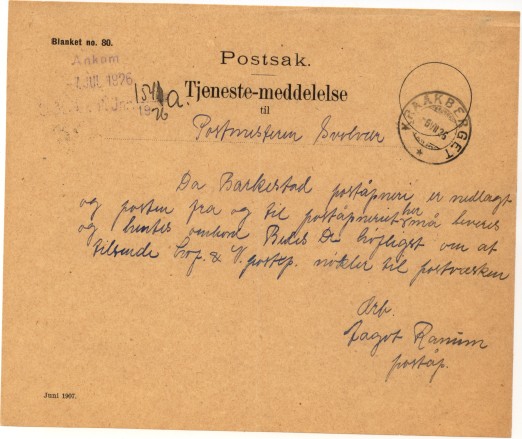 Blanket no. 80.
Postsak.
Ankom
JUL 1926
Tjeneste-meddelelse
til
Postmesteren Svolvær
KRAAKBERGET
Da Barkestad poståpneri er nedlagt
og posten fra og til poståpneriet her må leveres
og hentes ombord Bedes De høfligst om at
tilsende Lof. & V. postexp. nøkler til postvæsken
Ærb.
Ranum
poståp.
Juni 1907.